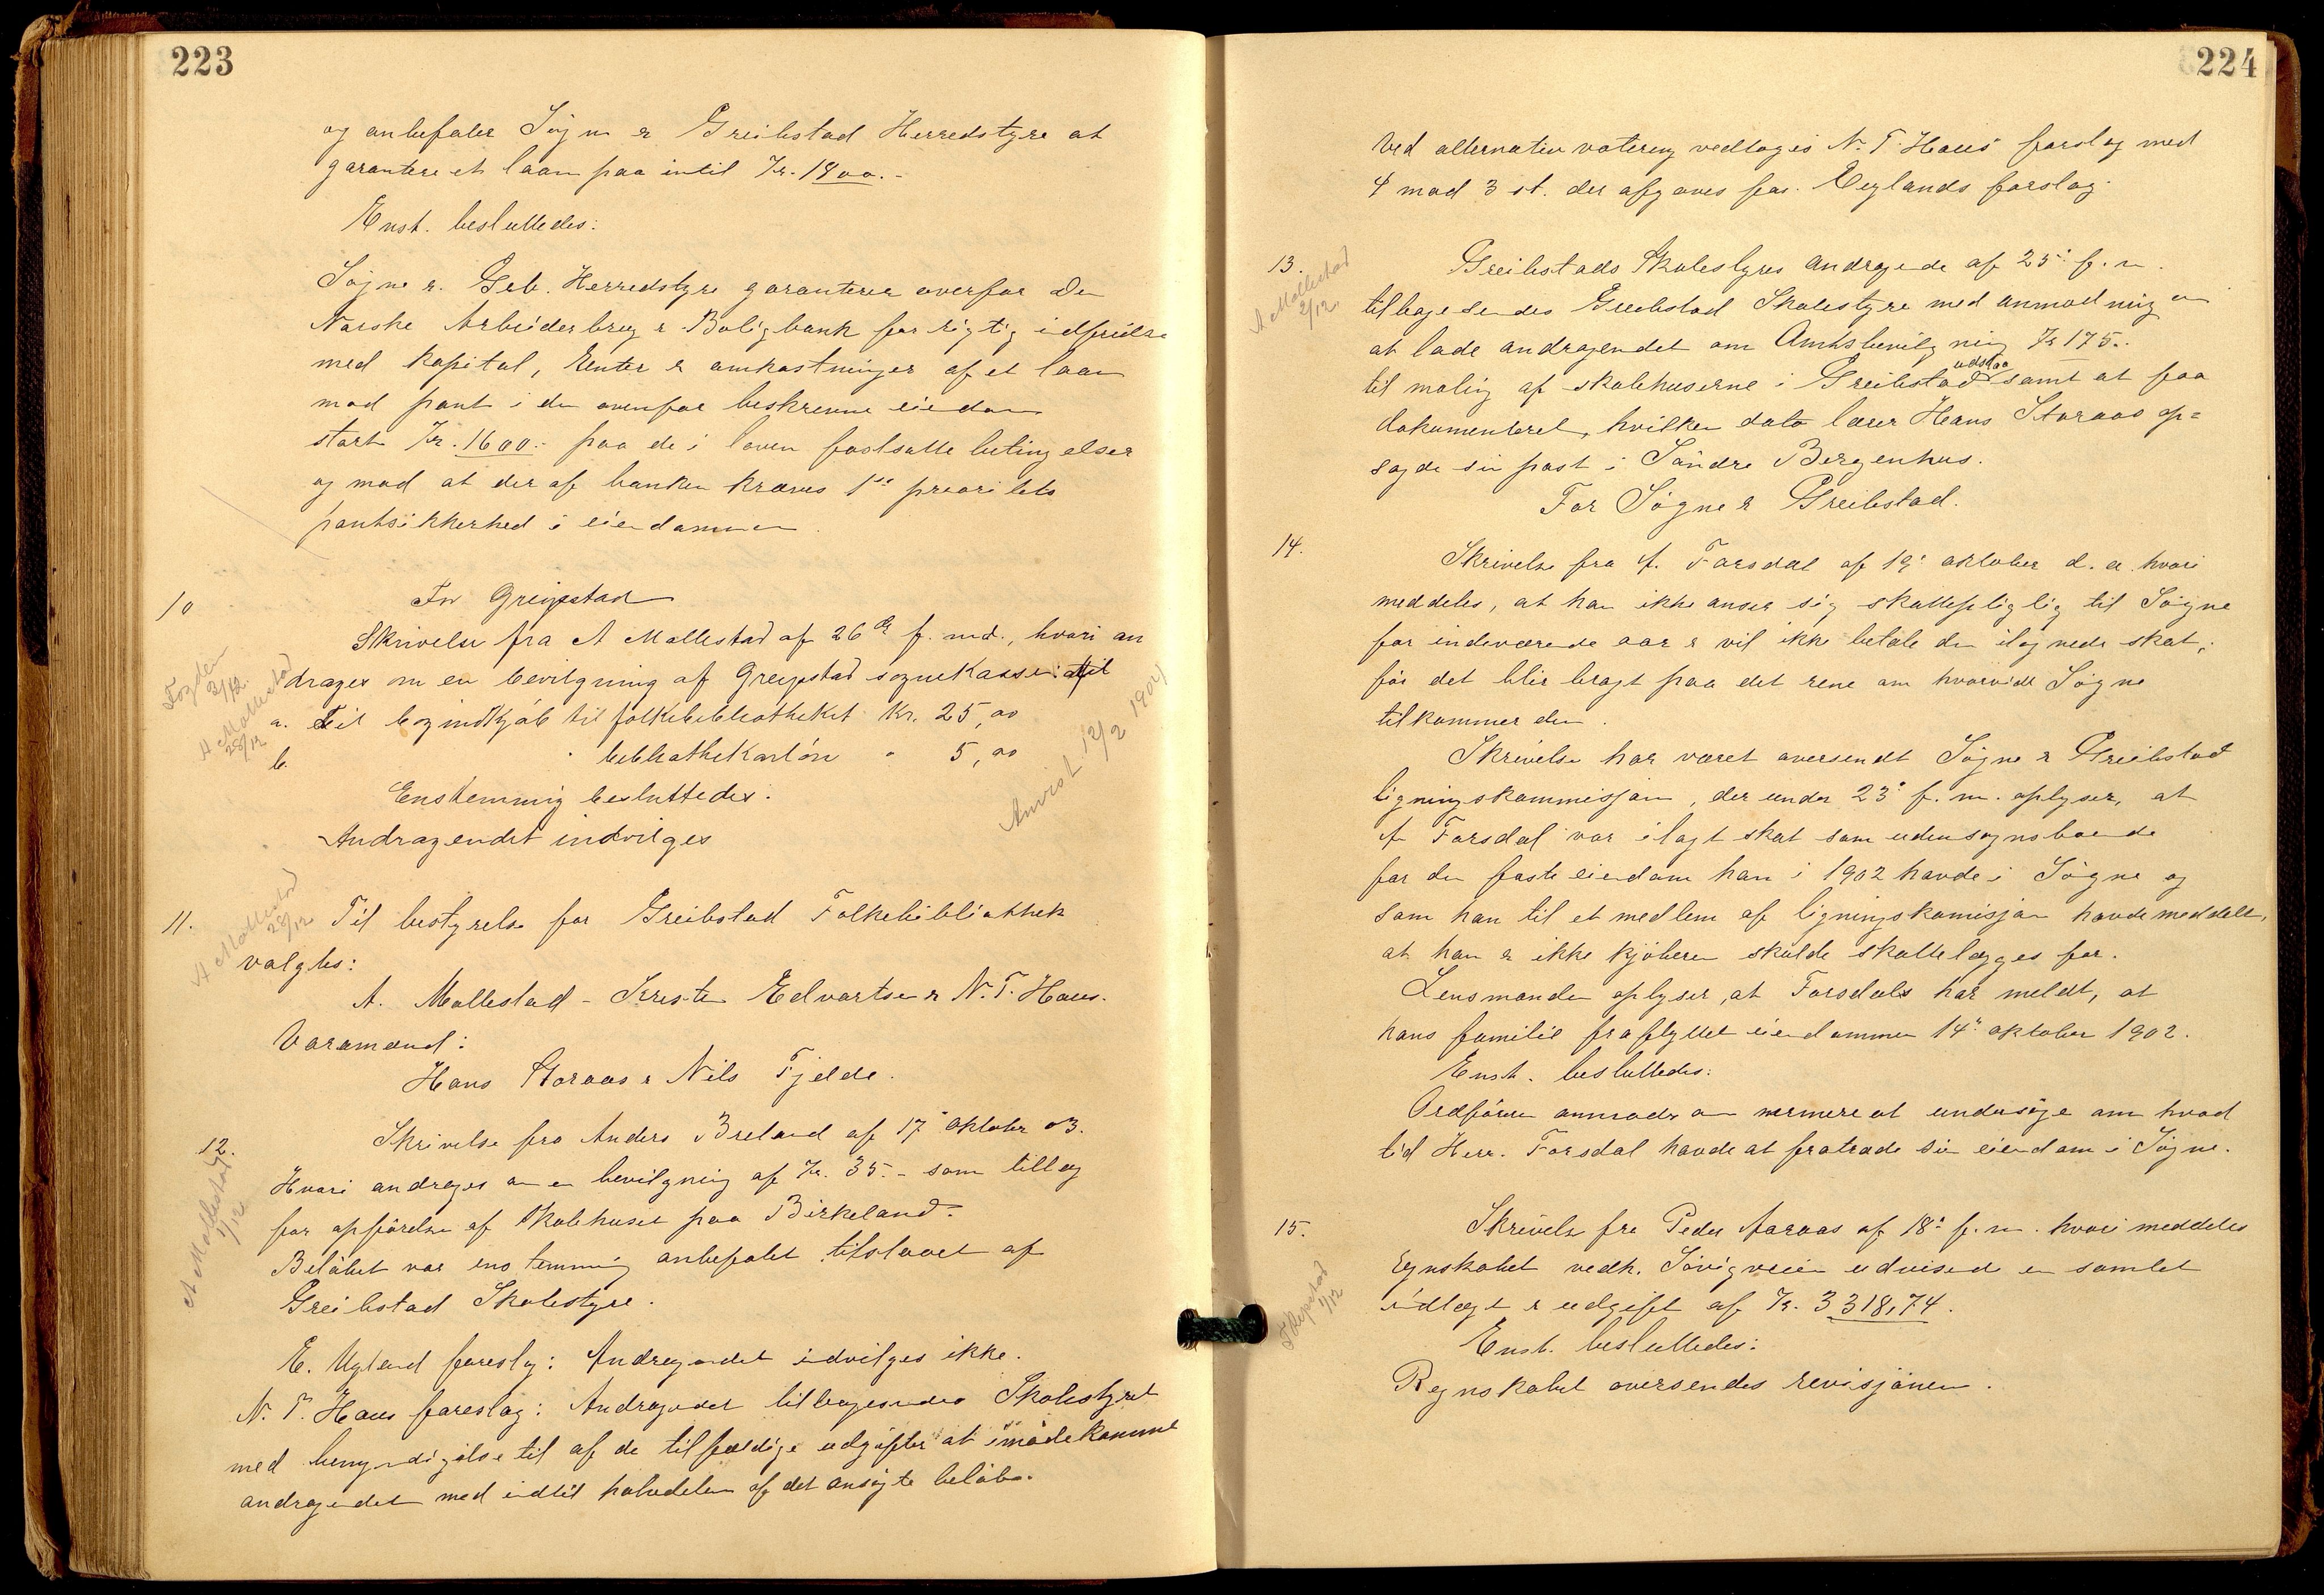 223
og anbefaler Søgne & Greibstad Herredstyre at
garantere et laan paa intil Kr. 1800.-
Enst. besluttedes:
Søgne & Greb. Herredstyre garanterer overfor Den
Norske Arbeiderbrug & Boligbank for rigtig idfrielse
med kapital, renter & omkostninger af et laan
mod pant i den ovenfor beskrevne eiendom
stort Kr. 1600.- paa de i loven fastsatte betingelser
og mod at der af banken kræves 1ste prioritets
pantsikkerhed i eiendommen.
For Greipstad
10
Skrivelse fra A Mollestad af 26de f. md., hvori an
drages om en bevilgning af Greipstad sognekasse:
a. Til bogindkjøb til folkebibliotheket Kr. 25,00
b. " bibliothekarløn " 5,00
Fogden 3/12.
A Mollestad 28/12
Anvist 12/2 1904
Enstemmig besluttedes:
Andragendet indvilges
11. Til bestyrelse for Greibstad Folkebibliothek
A Mollestad 28/12
valgtes:
A. Mollestad - Kristen Edvartsen & N. T. Haus.
Varamænd:
Hans Storaas & Nils Fjelde.
12. Skrivelse fra Anders Breland af 17de oktober 03.
A Mollestad 1/12
Hvori andrages om en bevilgning af Kr. 35.- som tillæg
for opførelse af Skolehuset paa Birkeland.
Beløbet var enstemmig anbefalet tilstaaet af
Greibstad Skolestyre.
E. Ugland foreslog: Andragendet idvilges ikke.
N. T. Haus foreslog: Andragendet tilbagesendes Skolestyret
med bemyndigelse til af de tilfældige udgifter at imødekomme
andragendet med indtil halvdelen af det ansøgte beløb.
224
Ved alternativ votering vedtoges N. T. Haus' forslag med
4 mod 3 st. der afgaves for Eyglands forslag.
13. Greibstads Skolestyres andragende af 25de f. m.
A Mollestad 2/12
tilbagesendes Greibstad Skolestyre med anmodning om
at lade andragendet om Amtsbevilgning Kr 175.-
til maling af skolehuserne i Greibstad udstaa samt at faa
dokumenteret, hvilken dato lærer Hans Storaas op=
sagde sin post i Søndre Bergenhus.
For Søgne & Greibstad.
14.
Skrivelse fra A. Forsdal af 19de oktober d. a. hvori
meddeles, at han ikke anser sig skattepligtig til Søgne
for indeværende aar & vil ikke betale den ilignede skat,
før det blir bragt paa det rene om hvorvidt Søgne
tilkommer den.
Skrivelse har været oversendt Søgne & Greibstad
ligningskommisjon, der under 23de f. m. oplyser, at
A Forsdal var ilagt skat som udensognsboende
for den faste eiendom han i 1902 havde i Søgne og
som han til et medlem af ligningskomisjon havde meddelt,
at han & ikke kjøberen skulde skattelægges for.
Lensmanden oplyser, at Forsdal har meldt, at
hans familie fraflyttet eiendommen 14de oktober 1902.
Enst. besluttedes:
Ordføreren anmodes om nærmere at undersøge om hvad
tid Herr. Forsdal havde at fratræde sin eiendom i Søgne.
15. Skrivelse fra Peder Aaraas af 18de f. m. hvori meddeles
Regnskabet vedk. Søvigveien udvisende en samlet
idtægt & udgift af Kr. 3318,74.
Repstad 1/12
Enst. besluttedes:
Regnskabet oversendes revisjonen.